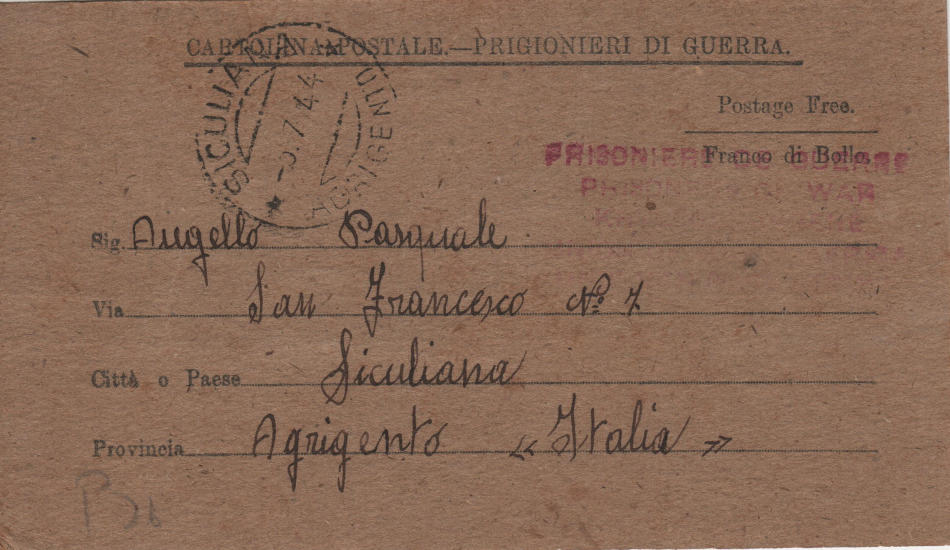 CARTOLINA POSTALE.—PRIGIONIERI DI GUERRA.
SICULIANA
AGRIGENTO
7.44
Postage Free.
Franco di Bollo.
PRISONIERS DE GUERRE
PRISONERS OF WAR
Sig. Augello Pasquale
Via San Francesco Nº 7
Città o Paese Siculiana
Provincia Agrigento « Italia »